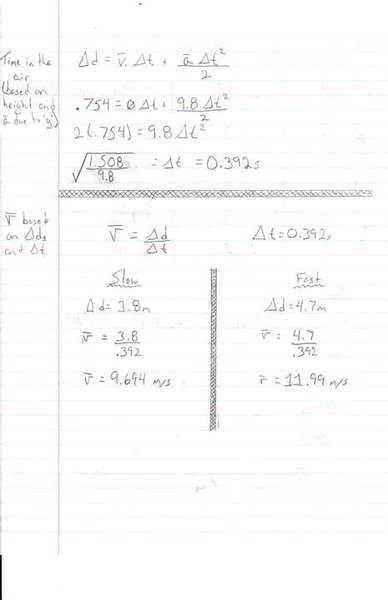 Time in the
air
(based on
height and
a⃗ due to 'g')
Δd = v⃗₁ Δt + a⃗ Δt²
2
.754 = 0 Δt + 9.8 Δt²
2
2(.754) = 9.8 Δt²
√ 1.508 = Δt = 0.392s
9.8
v⃗ based
on Δd
and Δt
v⃗ = Δd
Δt
Δt = 0.392s
Slow
Δd = 3.8m
v⃗ = 3.8
.392
v⃗ = 9.694 m/s
Fast
Δd = 4.7m
v⃗ = 4.7
.392
v⃗ = 11.99 m/s